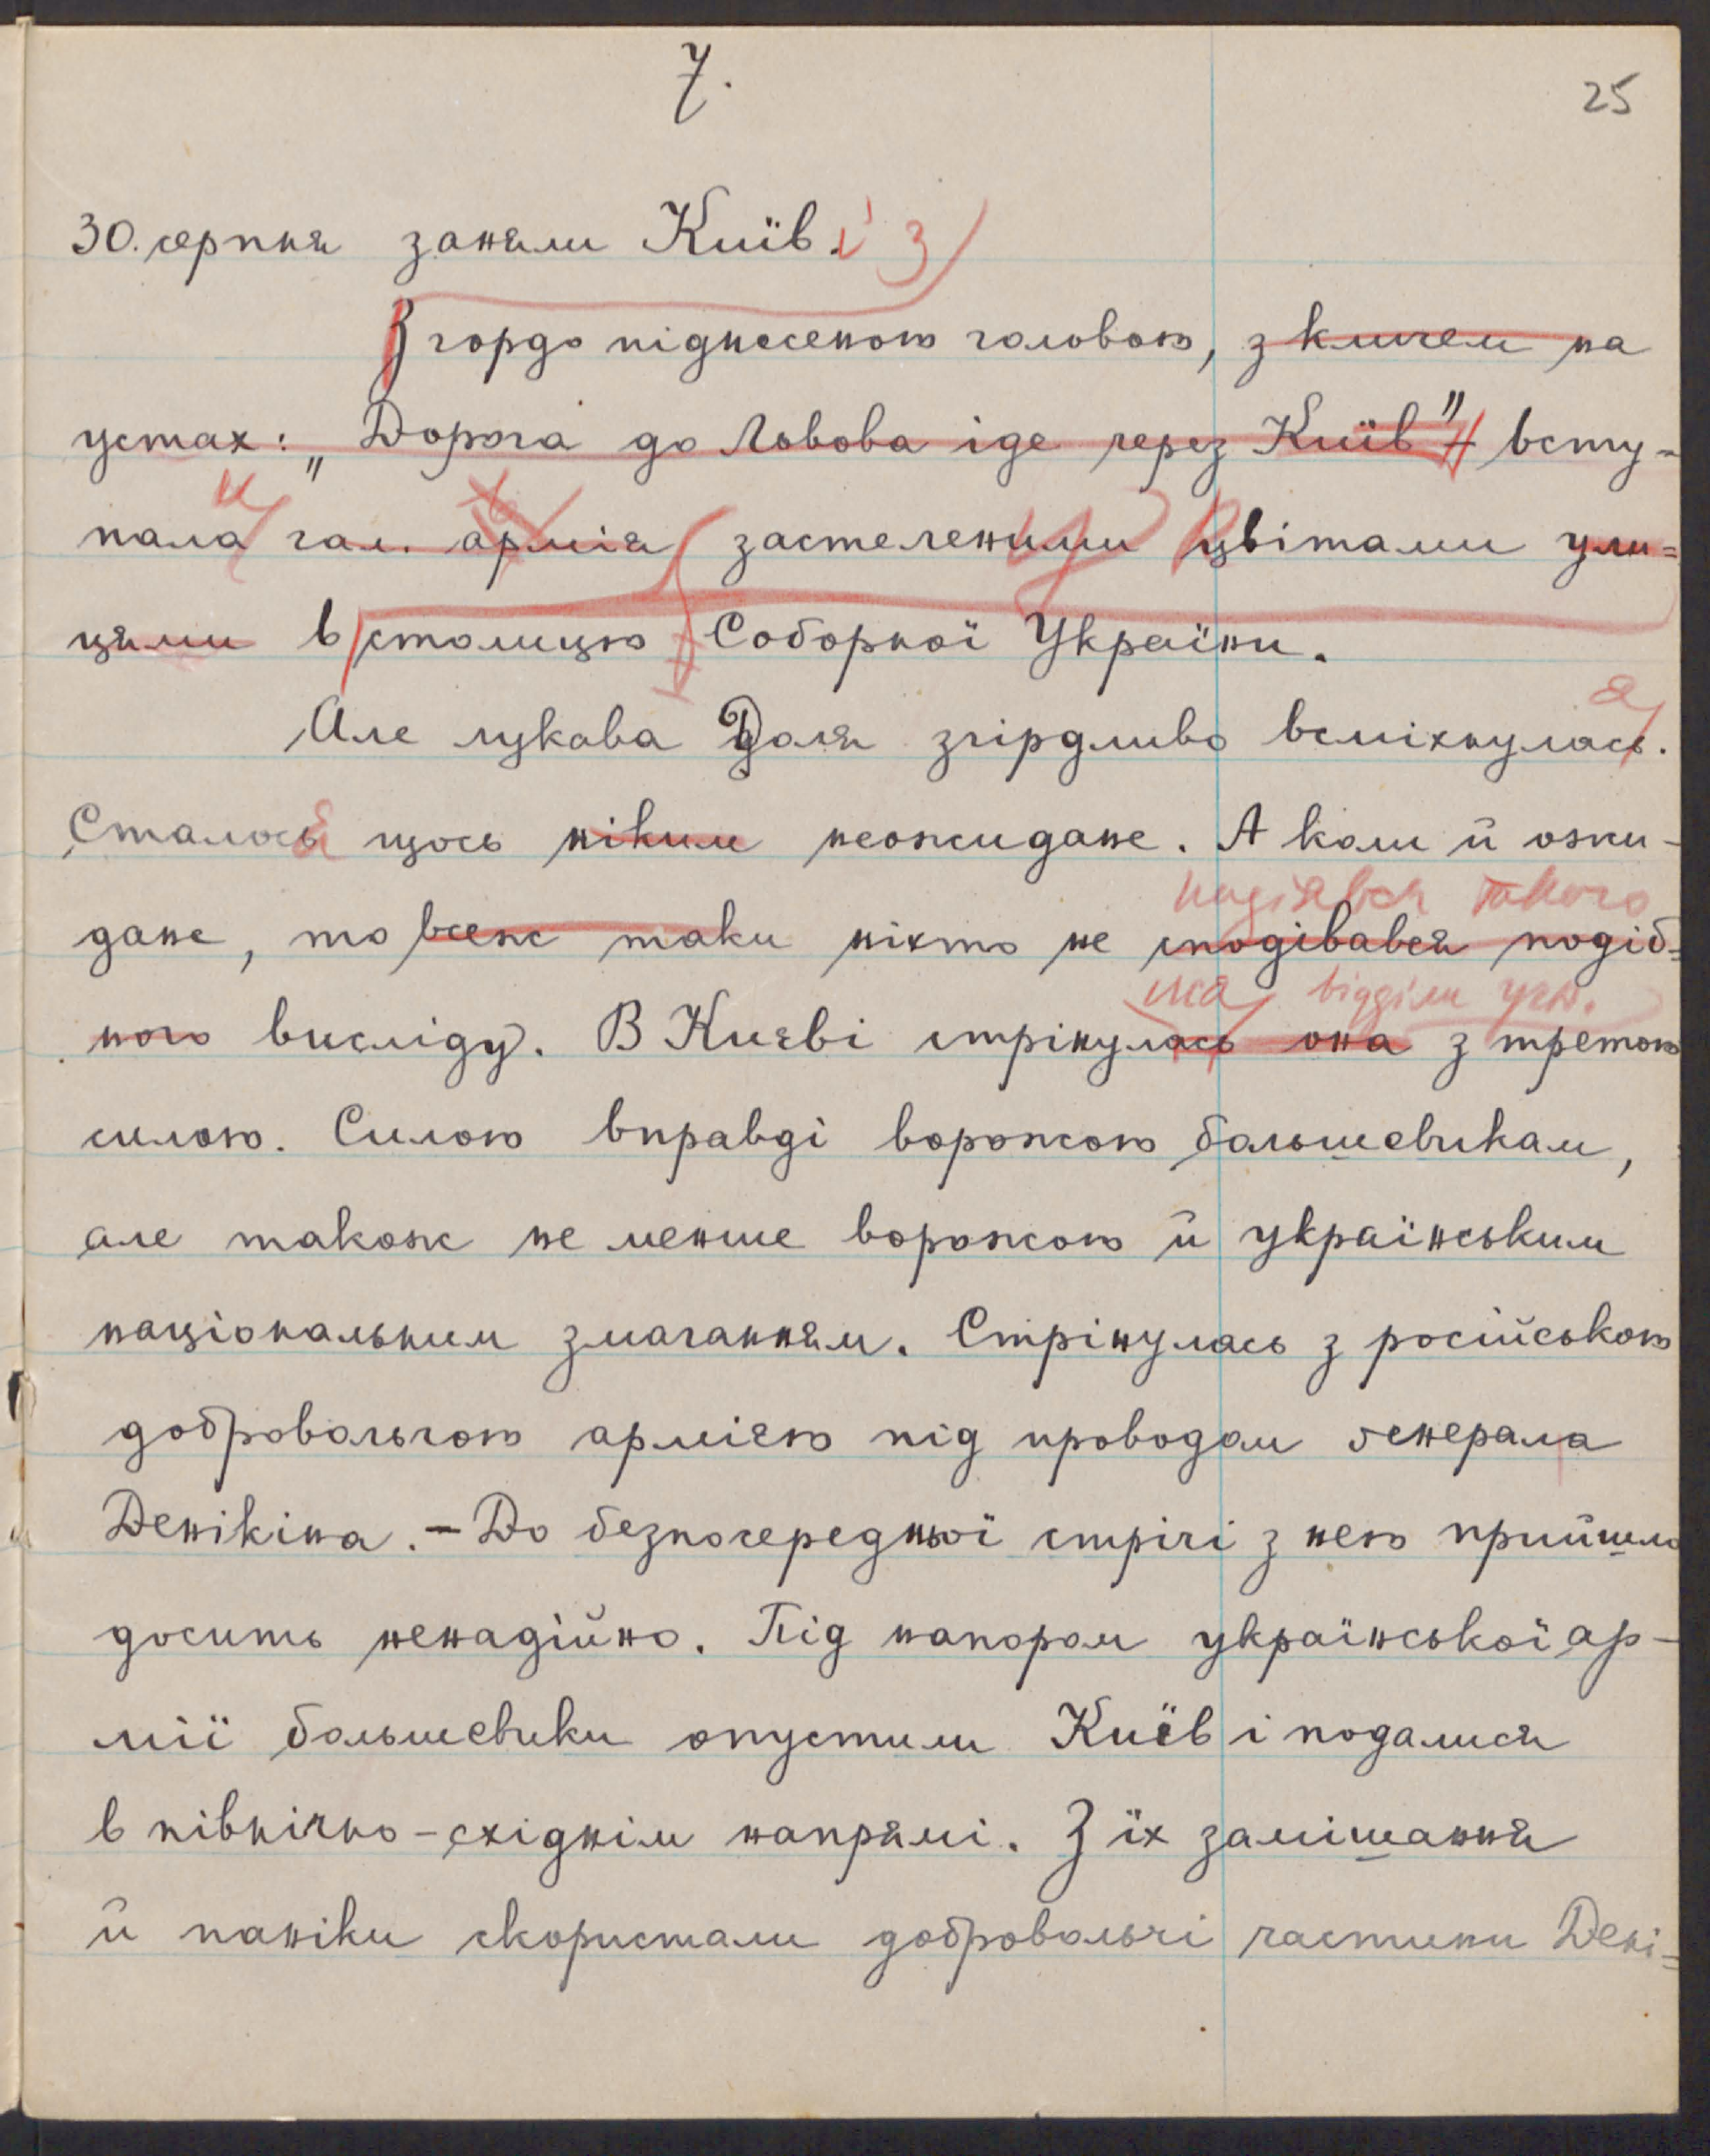 7.
25
30. серпня заняли Київ. і з
З гордо піднесеною головою, з кличем на
устах: „Дорога до Львова іде через Київ" всту-
пала гал. армія застеленими цвітами ули=
цями в столицю Соборної України.
Але лукава Доля згірдливо всміхнулась.
я
Сталось щось ніким неожидане. А коли й ожи-
надіявся такого
дане, то всеж таки ніхто не сподівався подіб=
ли віддїли укр.
ного висліду. В Києві стрінулась она з третою
силою. Силою вправді ворожою большевикам,
але також не менше ворожою й українським
національним змаганням. Стрінулась з російською
добровольчою армією під проводом ґенерала
Денікіна. – До безпосередньої стрічі з нею прийшло
досить ненадійно. Під напором української ар-
мії большевики опустили Київ і подалися
в північно-східнім напрямі. З їх замішання
й паніки скористали добровольчі частини Дені=